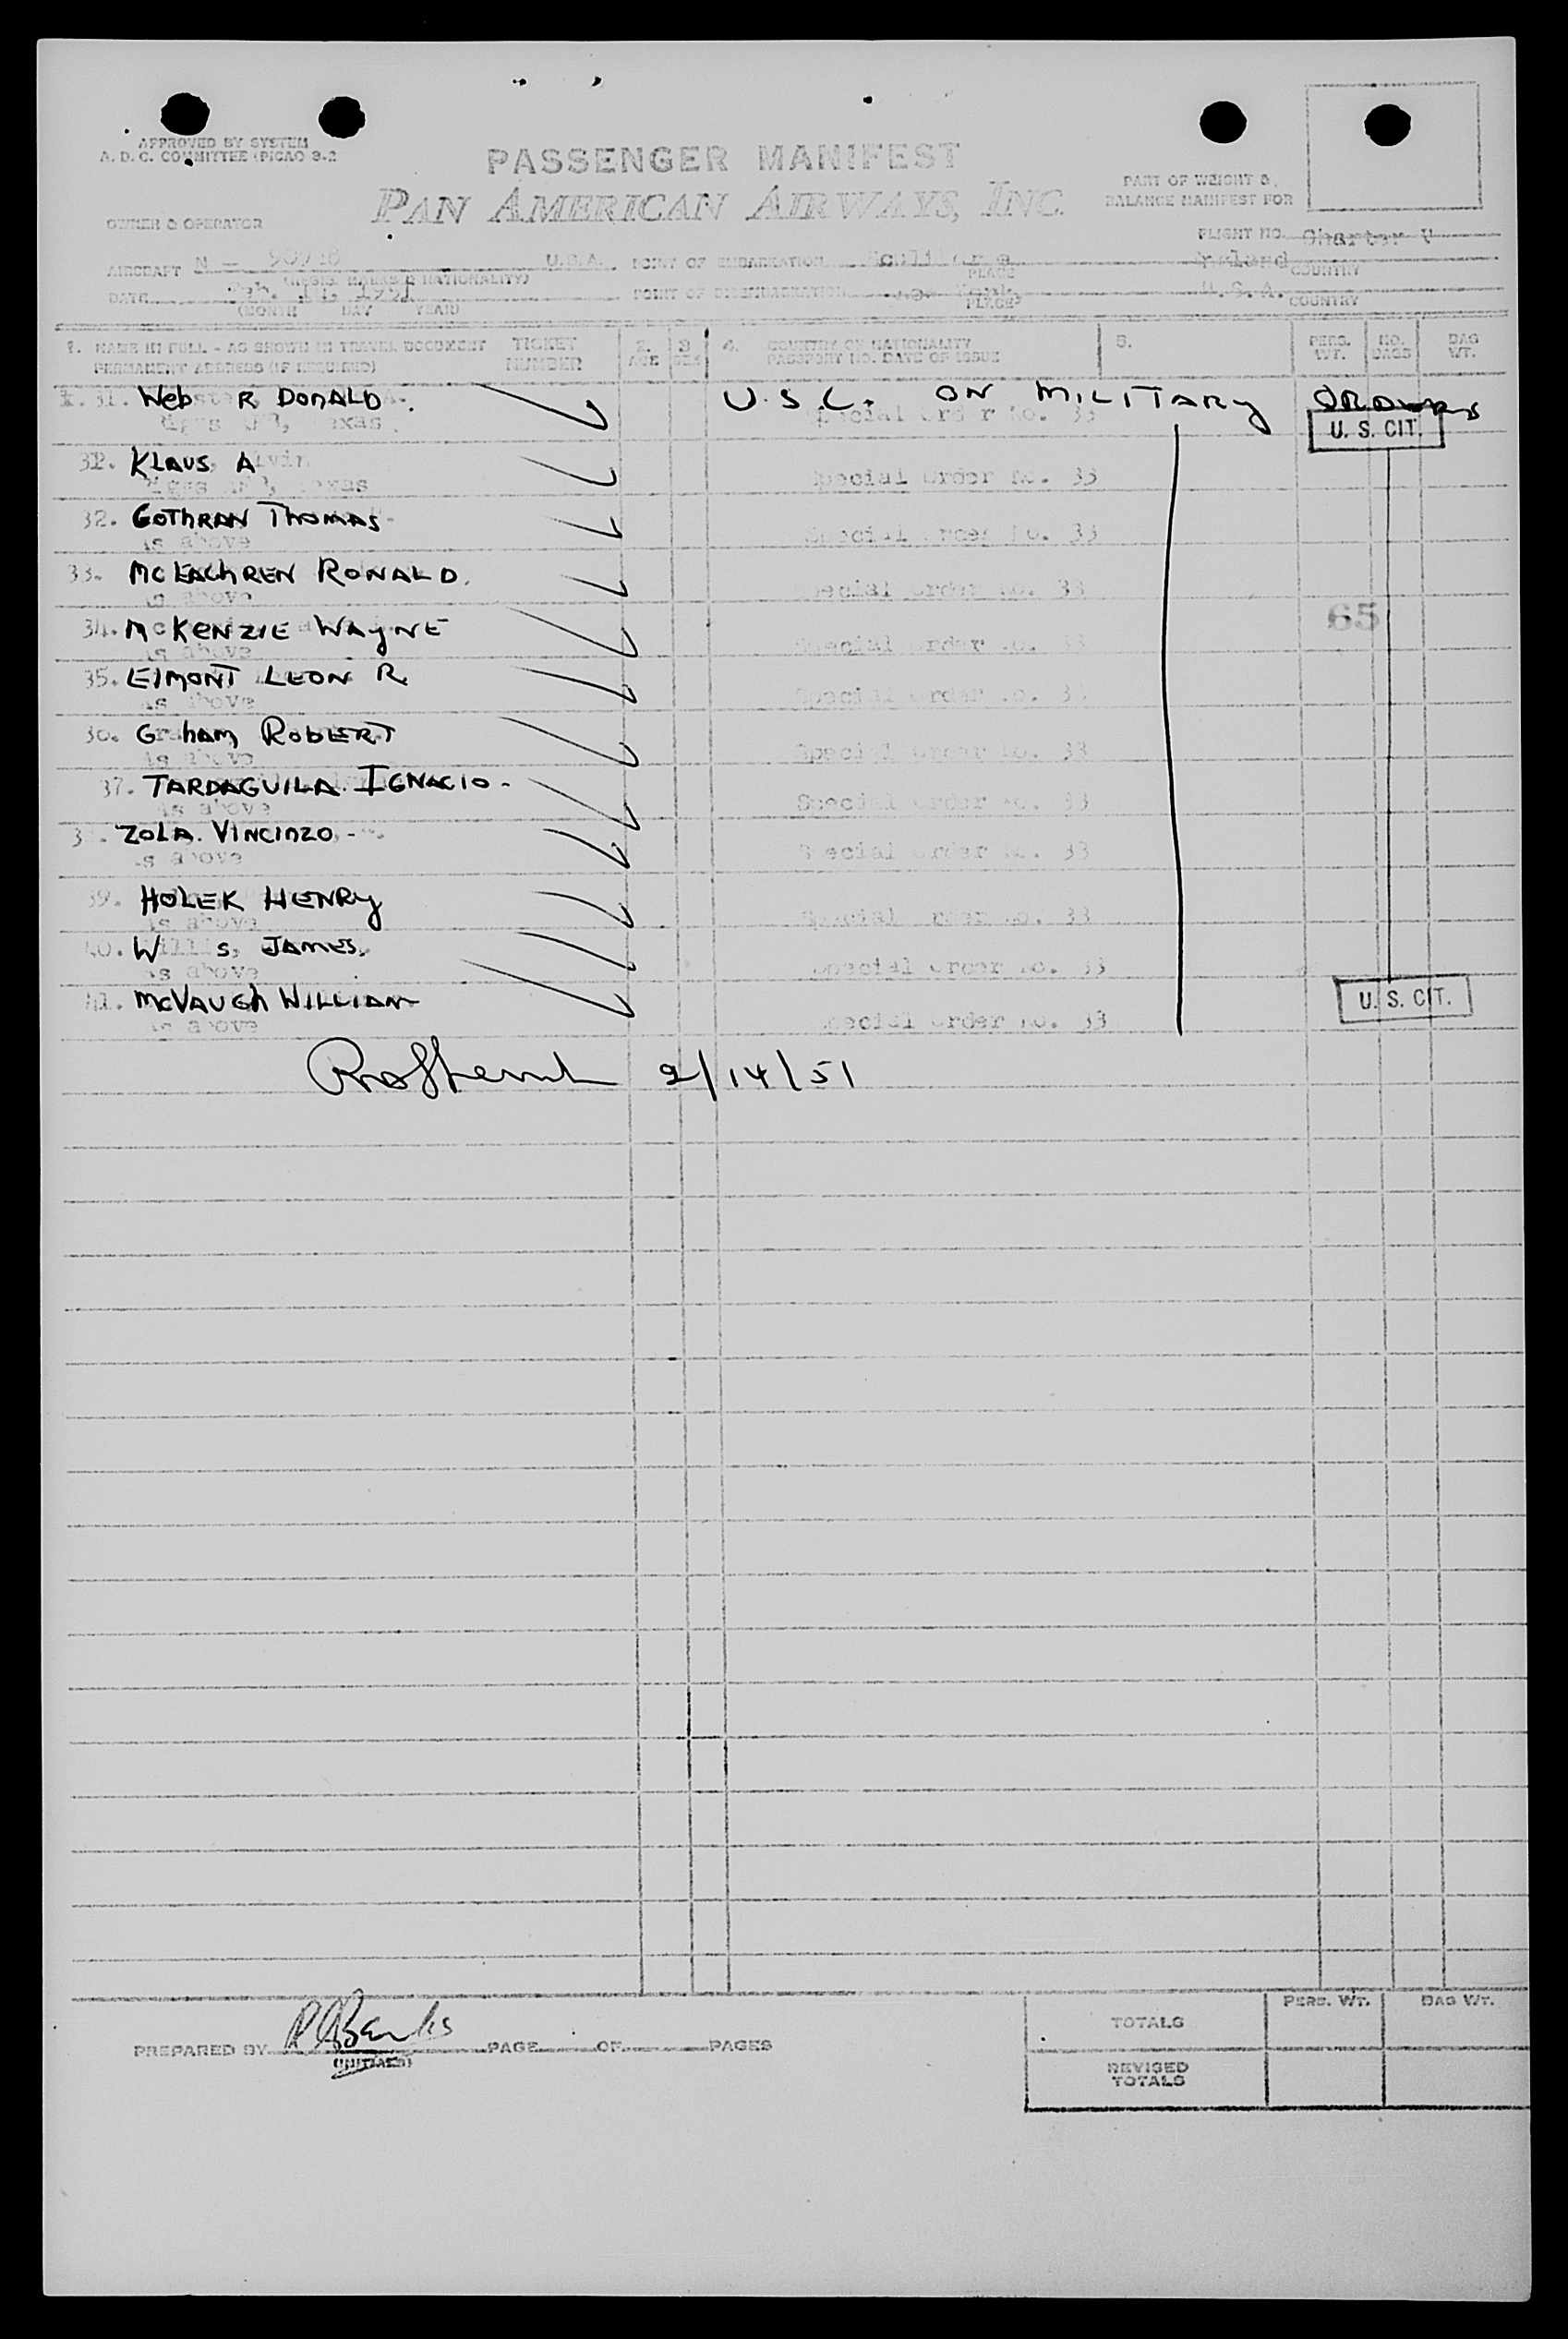 APPROVED BY SYSTEM
A. D. C. COMMITTEE (PICAO 9.2
PASSENGER MANIFEST
PAN AMERICAN AIRWAYS, INC.
PART OF WEIGHT &
BALANCE MANIFEST FOR
OWNER & OPERATOR
FLIGHT NO. Charter V
AIRCRAFT N - U.S.A. POINT OF EMBARKATION PLACE COUNTRY
(REGIS. MARKS & NATIONALITY)
DATE Feb. 1951 POINT OF DISEMBARKATION PLACE U.S.A. COUNTRY
(MONTH DAY YEAR)
1. NAME IN FULL - AS SHOWN IN TRAVEL DOCUMENT TICKET 2. 3 4. COUNTRY OF NATIONALITY 5. PERS. NO. BAG
PERMANENT ADDRESS (IF REQUIRED) NUMBER AGE SEX PASSPORT NO. DATE OF ISSUE WT. BAGS WT.
31. Webster R DONALD. U.S.C. ON MILITARY ORDERS
Texas Special Order No. 33
U. S. CIT.
KLAUS, Alvin
Texas Special Order No. 33
32. GOTHRAN THOMAS
As above Special Order No. 33
33. MCEACHREN RONALD.
As above Special Order No. 33
34. McKENZIE WAYNE 65
As above Special Order No. 33
35. EIMONT LEON R
As above Special Order No. 33
36. Graham, ROBERT
As above Special Order No. 33
37. TARDAGUILA. IGNACIO-
As above Special Order No. 33
ZOLA. VINCINZO
As above Special Order No. 33
39. HOLEK HENRY
As above Special Order No. 33
40. Willis, JAMES.
As above Special Order No. 33
41. McVAUGH WILLIAM U. S. CIT.
As above Special Order No. 33
2/14/51
PREPARED BY R Banks PAGE OF PAGES
(INITIALS)
PERS. WT. BAG WT.
TOTALS
REVISED
TOTALS